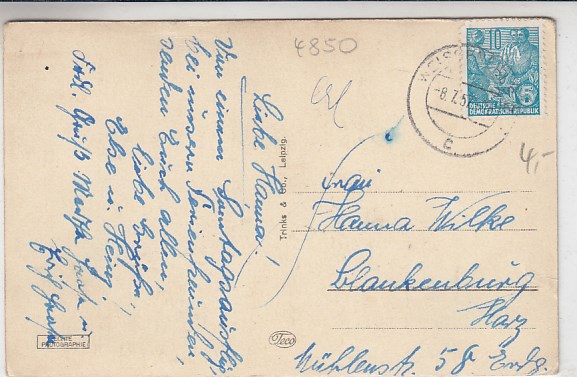 4850
Liebe Hanna!
Von einem Sonntagsausflug
bei unseren Ferienfreunden,
senden Euch allen,
liebe Grüße,
Ebe u. Heinz
Frdl. Grüße
Trinks & Co., Leipzig.
ECHTE
PHOTOGRAPHIE
Teco
10
5
DEUTSCHE
DEMOKRATISCHE REPUBLIK
-8.7.5
c
4,-
Frau
Hanna Wilke
Blankenburg
Harz
Mühlenstr. 58 Erdg.